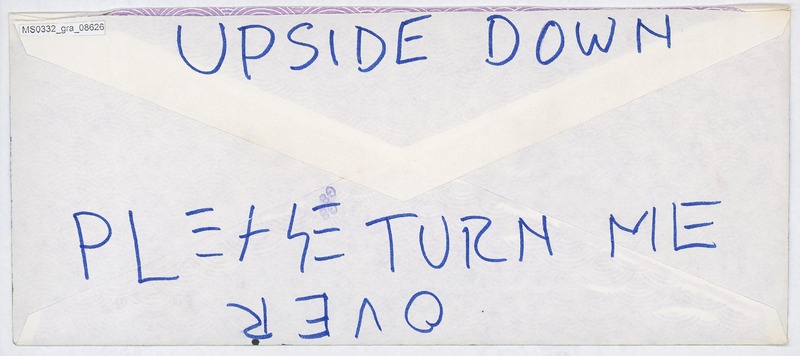 MS0332_gra_08626
UPSIDE DOWN
PLEASE TURN ME
OVER